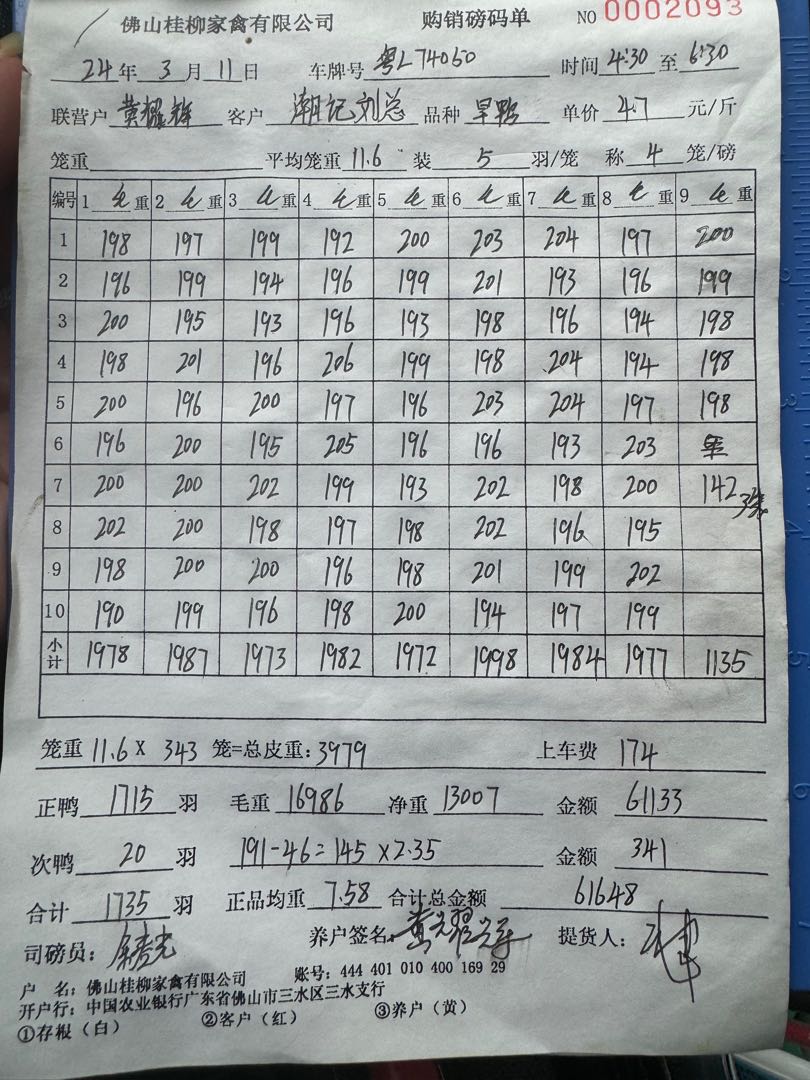 佛山桂柳家禽有限公司 购销磅码单 NO 0002093
24年3月11日 车牌号 粤L74060 时间 4:30 至 6:30
联营户 黄耀辉 客户 潮记刘总 品种 早鸭 单价 4.7 元/斤
笼重 平均笼重 11.6 装 5 羽/笼 称 4 笼/磅
编号 1 毛重 2 毛重 3 毛重 4 毛重 5 毛重 6 毛重 7 毛重 8 毛重 9 毛重
1 198 197 199 192 200 203 204 197 200
2 196 199 194 196 199 201 193 196 199
3 200 195 193 196 193 198 196 194 198
4 198 201 196 206 199 198 204 194 198
5 200 196 200 197 196 203 204 197 198
6 196 200 195 205 196 196 193 203
7 200 200 202 199 193 202 198 200 142
8 202 200 198 197 198 202 196 195
9 198 200 200 196 198 201 199 202
10 190 199 196 198 200 194 197 199
小计 1978 1987 1973 1982 1972 1998 1984 1977 1135
笼重 11.6 X 343 笼=总皮重: 3979 上车费 174
正鸭 1715 羽 毛重 16986 净重 13007 金额 61133
次鸭 20 羽 191-46=145 X2.35 金额 341
合计 1735 羽 正品均重 7.58 合计总金额 61648
司磅员: 养户签名: 黄耀辉 提货人:
户 名: 佛山桂柳家禽有限公司 账号: 444 401 010 400 169 29
开户行: 中国农业银行广东省佛山市三水区三水支行
①存根（白） ②客户（红） ③养户（黄）